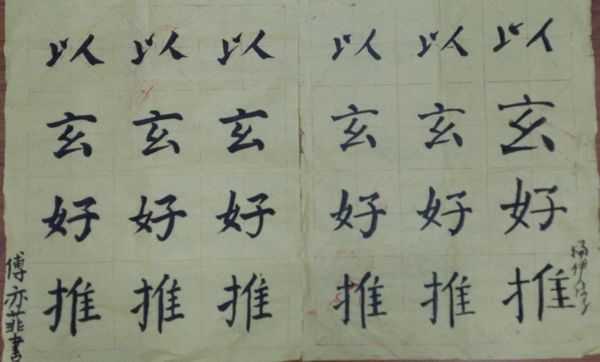 以玄好推
以玄好推
以玄好推
以玄好推
以玄好推
以玄好推
傅亦菲書